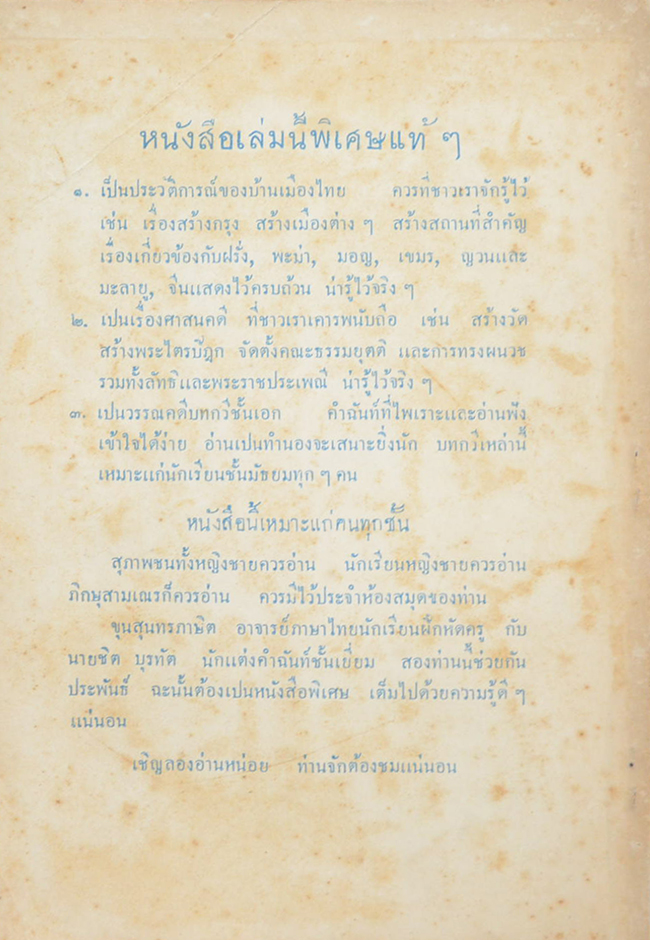 หนังสือเล่มนี้พิเศษแท้ ๆ
๑. เป็นประวัติการณ์ของบ้านเมืองไทย ควรที่ชาวเราจักรู้ไว้
เช่น เรื่องสร้างกรุง สร้างเมืองต่าง ๆ สร้างสถานที่สำคัญ
เรื่องเกี่ยวข้องกับฝรั่ง, พะม่า, มอญ, เขมร, ญวนและ
มะลายู, จีนแสดงไว้ครบถ้วน น่ารู้ไว้จริง ๆ
๒. เปนเรื่องศาสนคดี ที่ชาวเราเคารพนับถือ เช่น สร้างวัด
สร้างพระไตรปิฎก จัดตั้งคณะธรรมยุตติ และการทรงผนวช
รวมทั้งลัทธิและพระราชประเพณี น่ารู้ไว้จริง ๆ
๓. เปนวรรณคดีบทกวีชั้นเอก คำฉันท์ที่ไพเราะและอ่านฟัง
เข้าใจได้ง่าย อ่านเปนทำนองจะเสนาะยิ่งนัก บทกวีเหล่านี้
เหมาะแก่นักเรียนชั้นมัธยมทุก ๆ คน
หนังสือนี้เหมาะแก่คนทุกชั้น
สุภาพชนทั้งหญิงชายควรอ่าน นักเรียนหญิงชายควรอ่าน
ภิกษุสามเณรก็ควรอ่าน ควรมีไว้ประจำห้องสมุดของท่าน
ขุนสุนทรภาษิต อาจารย์ภาษาไทยนักเรียนฝึกหัดครู กับ
นายชิต บุรทัต นักแต่งคำฉันท์ชั้นเยี่ยม สองท่านนี้ช่วยกัน
ประพันธ์ ฉะนั้นต้องเปนหนังสือพิเศษ เต็มไปด้วยความรู้ดี ๆ
แน่นอน
เชิญลองอ่านหน่อย ท่านจักต้องชมแน่นอน